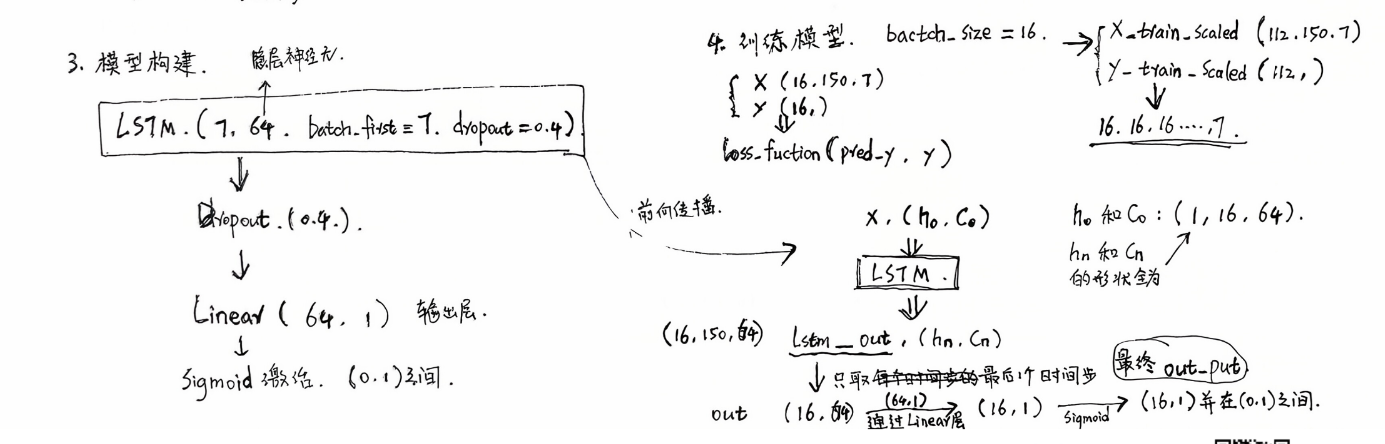 3. 模型构建.
隐层神经元.
LSTM.(7, 64. batch_first = T. dropout = 0.4)
Dropout.(0.4.).
Linear( 64. 1) 输出层.
Sigmoid 激活. (0.1)之间.
前向传播.
4. 训练模型. bactch_size = 16.
X_train_scaled (112.150.7)
Y_train_scaled (112,)
16.16.16....,7.
X (16.150.7)
Y (16,)
loss_fuction(pred_y, y)
X, (h0, C0)
LSTM.
h0 和 C0 : (1, 16, 64).
hn 和 Cn
的形状全为
(16,150,64) Lstm_out, (hn, Cn)
只取每个时间步的最后1个时间步
最终 out_put
out (16, 64) (64,1) 通过Linear层 (16,1) Sigmoid (16,1)并在(0.1)之间.